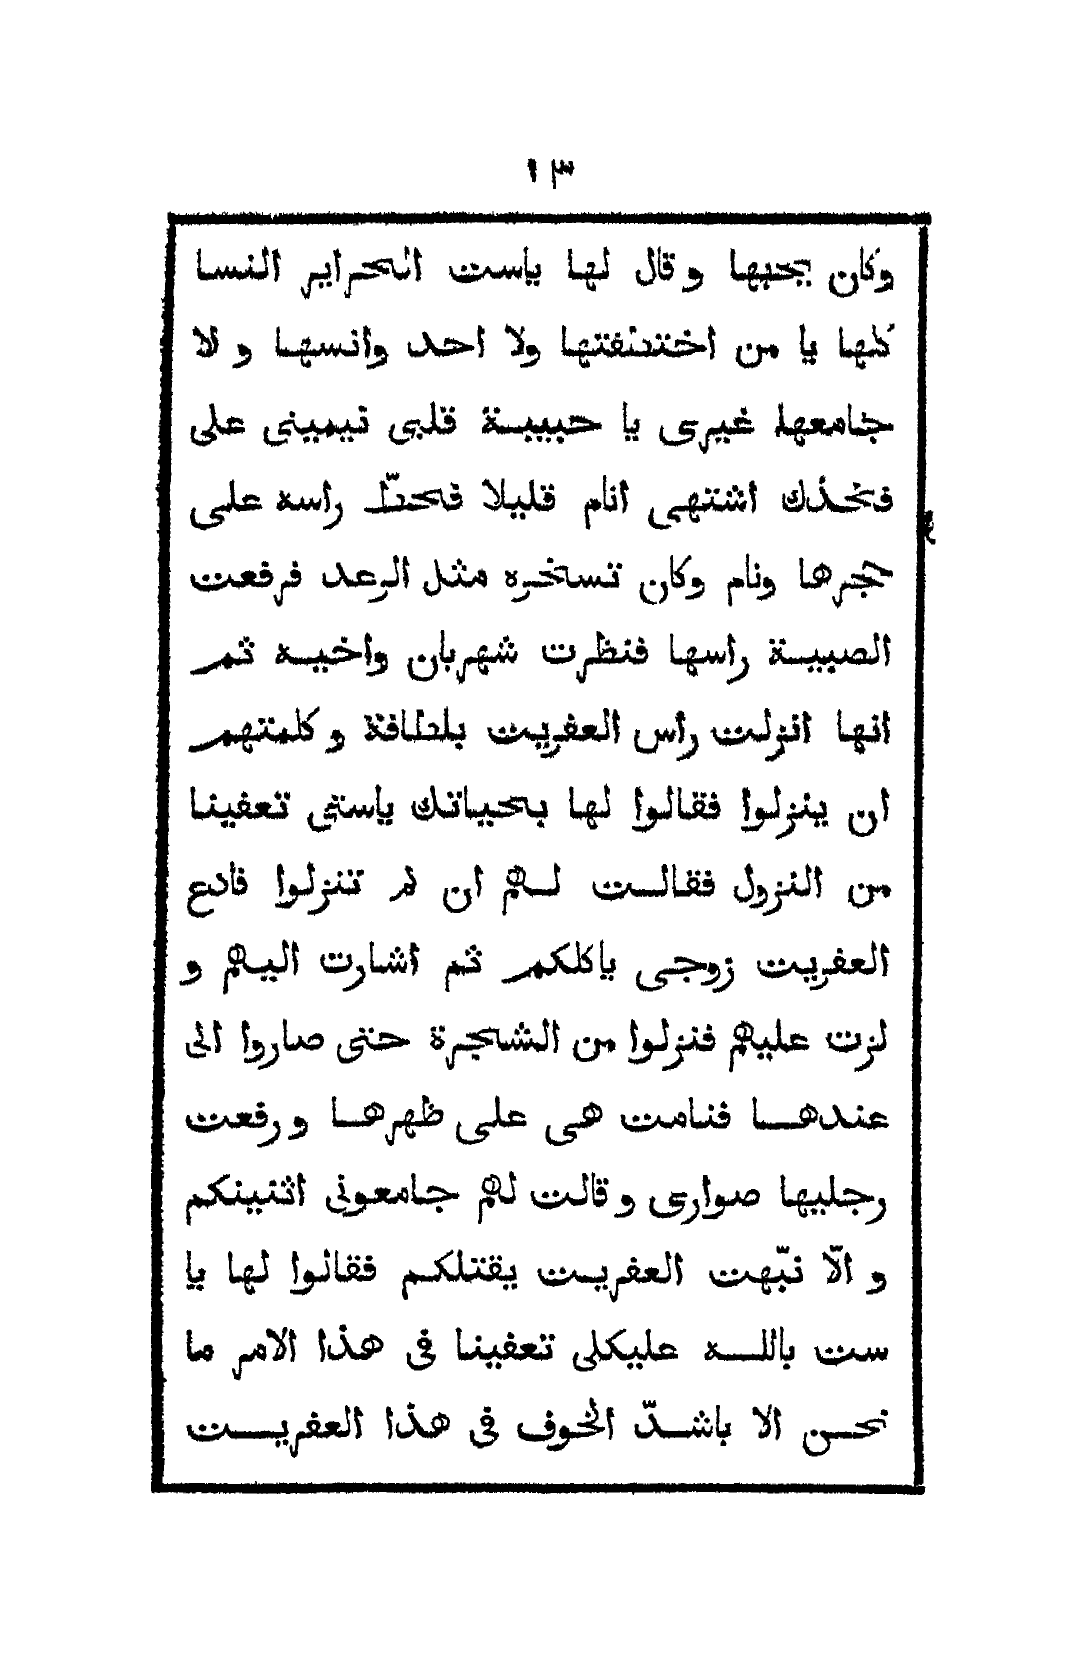 ١٣
وكان يحبها و قال لها ياست الحراير النسا
كلها يا من اختطفتها ولا احد وانسها و لا
جامعها غيرى يا حبيبة قلبى تيمينى على
فخذك اشتهى انام قليلا فحطّ راسه على
حجرها ونام وكان تسخره مثل الرعد فرفعت
الصبيـة راسها فنظرت شهربان واخيـه ثم
انها انزلت رأس العفريت بلطافة و كلمتهم
ان ينزلوا فقالوا لها بحياتك ياستى تعفينا
من النزول فقالـت لـهم ان لم تنزلوا فادع
العفريت زوجى ياكلكم ثم اشارت اليهم و
لزت عليهم فنزلوا من الشجرة حتى صاروا الى
عندهـا فنامت هى على ظهرهـا و رفعت
رجليها صوارى و قالت لهم جامعونى اثنينكم
و الّا نبّهت العفريت يقتلكم فقالوا لها يا
ست باللـه عليكلى تعفينا فى هذا الامر ما
نحـن الا باشدّ الخوف فى هذا العفريـت